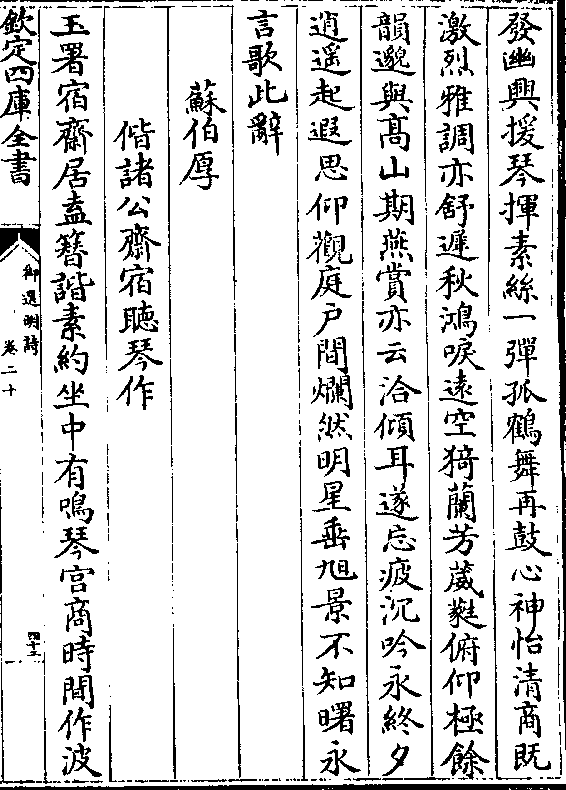 發幽興援琴揮素絲一彈孤鶴舞再鼓心神怡清商既
激烈雅調亦舒遲秋鴻唳遠空猗蘭芳葳蕤俯仰極餘
韻邈與髙山期燕賞亦云洽傾耳遂忘疲沉吟永終夕
逍遥起遐思仰觀庭户間爛然明星垂旭景不知曙永
言歌此辭
蘇伯厚
偕諸公齋宿聽琴作
玉署宿齋居盍簪諧素約坐中有鳴琴宫商時間作波
欽定四庫全書
御選明詩
卷二十
四十三